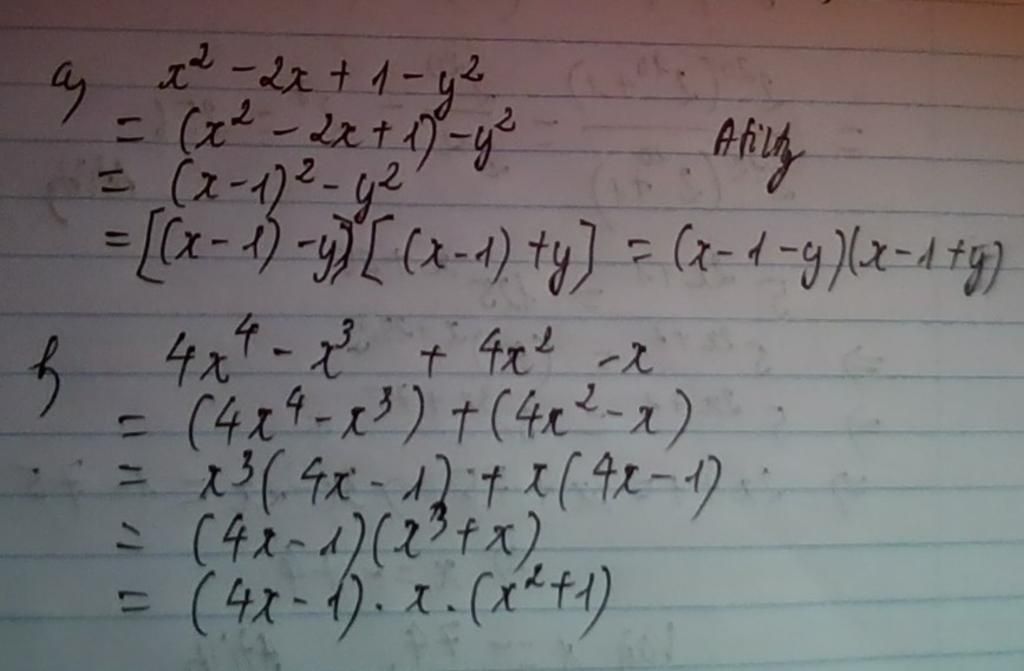 a) x² - 2x + 1 - y²
= (x² - 2x + 1) - y²
= (x - 1)² - y²
= [(x - 1) - y][(x - 1) + y] = (x - 1 - y)(x - 1 + y)
b) 4x⁴ - x³ + 4x² - x
= (4x⁴ - x³) + (4x² - x)
= x³(4x - 1) + x(4x - 1)
= (4x - 1)(x³ + x)
= (4x - 1) . x . (x² + 1)